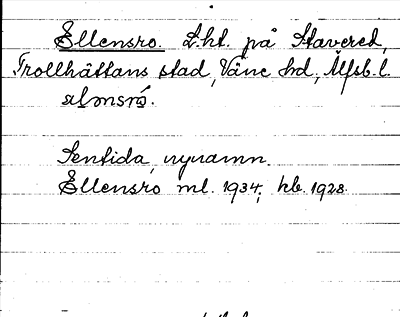 Ellensro. L.ht. på Stavered,
Trollhättans stad, Väne hd, Älfsb. l.
Sentida nynamn.
Ellensro ml. 1934, hb. 1928